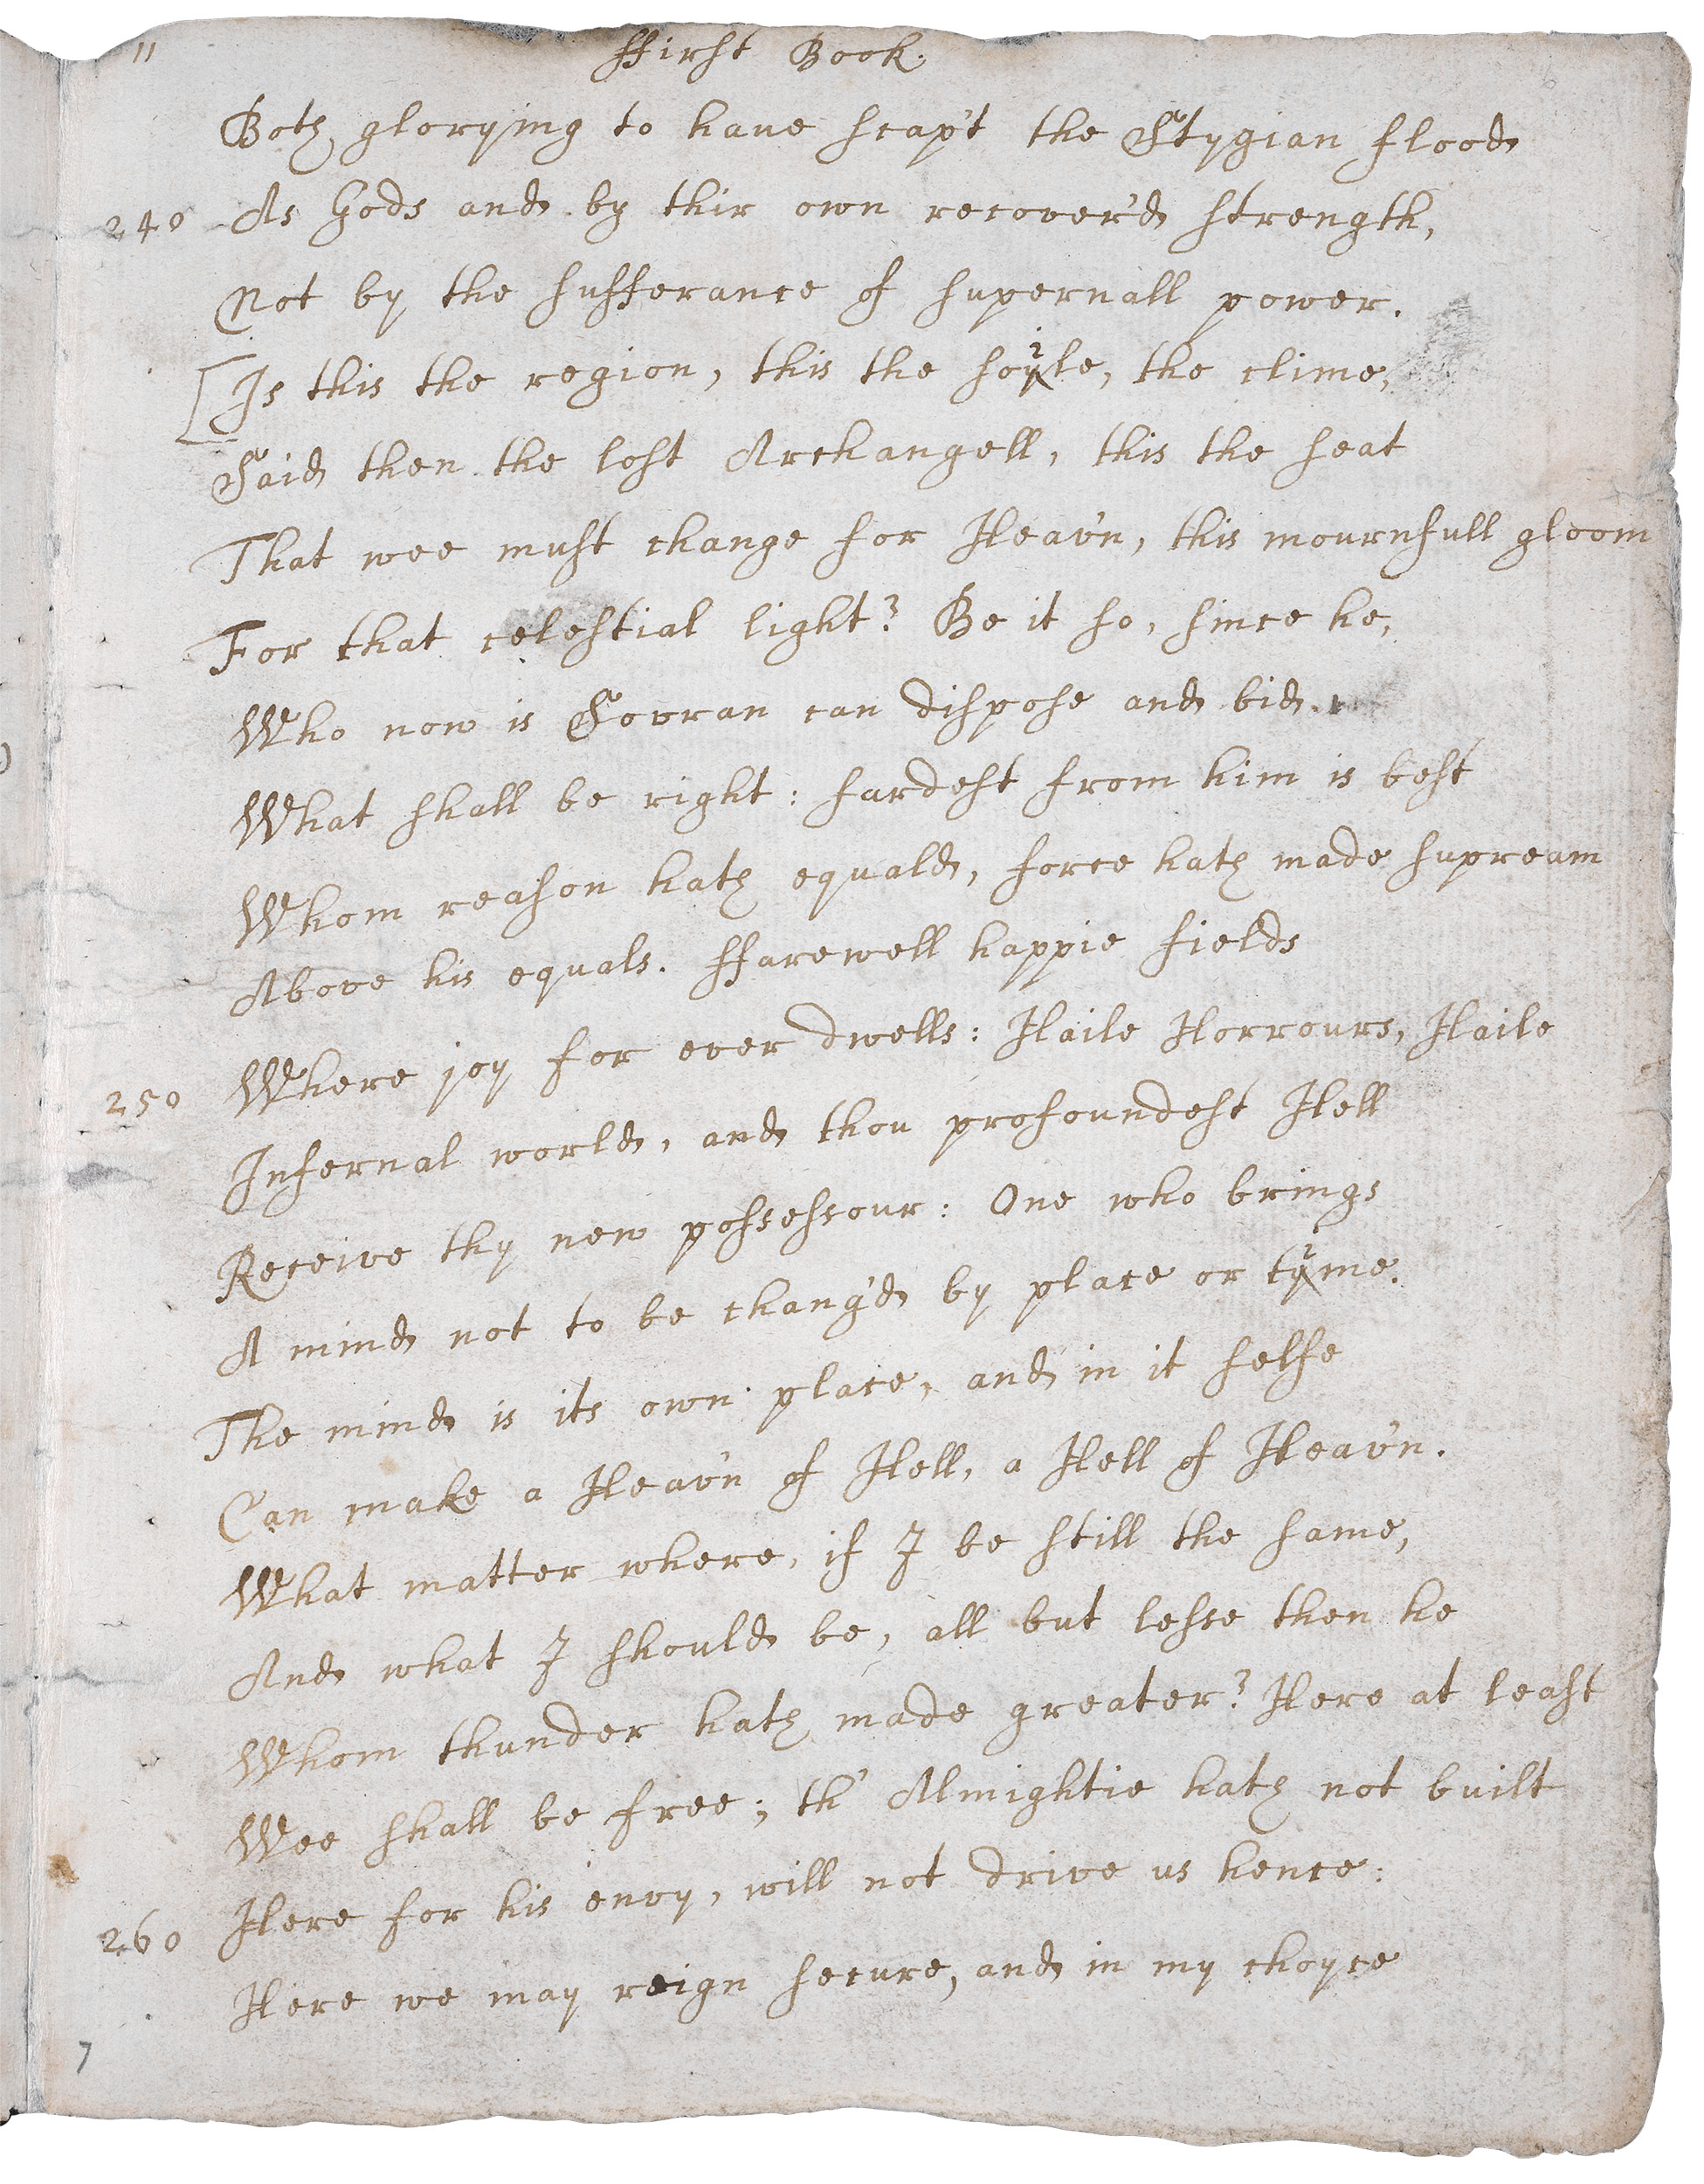 11
ffirst Book.
Both glorying to haue scap't the Stygian flood
240 As Gods and by thir own recover'd strength,
Not by the sufferance of supernall power.
[Is this the region, this the soyle, the clime,
Said then the lost Archangell, this the seat
That wee must change for Heav'n, this mournfull gloom
For that celestial light? Be it so, since he,
Who now is Sovran can dispose and bid
What shall be right: fardest from him is best
Whom reason hath equald, force hath made supream
Above his equals. ffarewell happie fields
250 Where joy for ever dwells: Haile Horrours, Haile
Infernal world, and thou profoundest Hell
Receive thy new possessour: One who brings
A mind not to be chang'd by place or tyme.
The mind is its own place, and in it selfe
Can make a Heav'n of Hell, a Hell of Heav'n.
What matter where, if I be still the same,
And what I should be, all but lesse then he
Whom thunder hath made greater? Here at least
Wee shall be free; th' Almightie hath not built
260 Here for his envy, will not drive us hence:
Here we may reign secure, and in my choyce
7